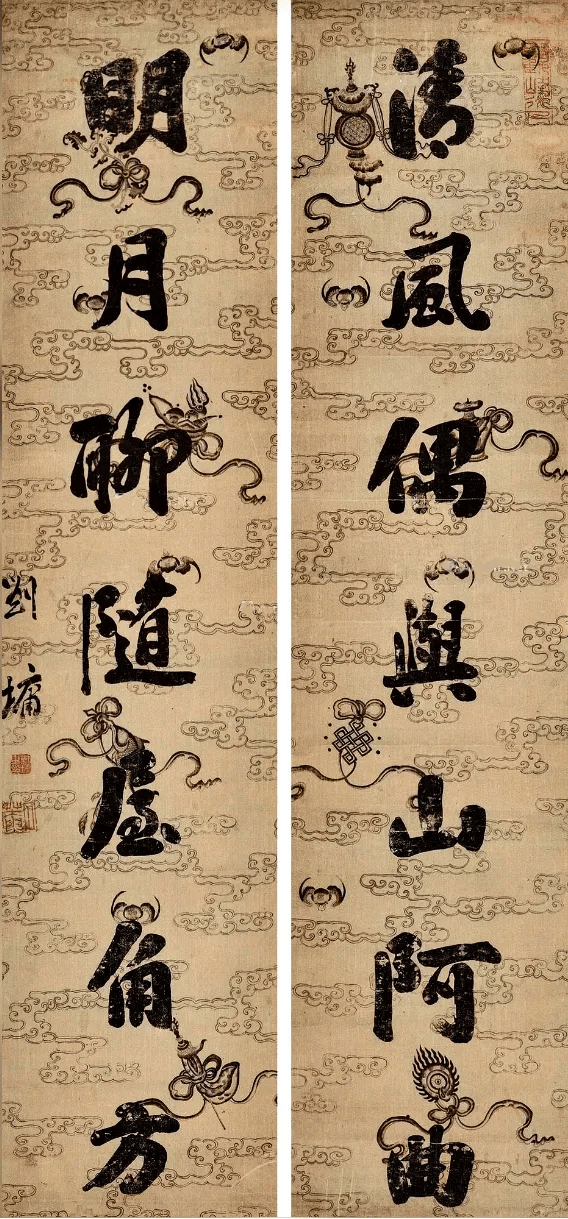 清風偶與山阿曲
明月聊隨屋角方
劉墉